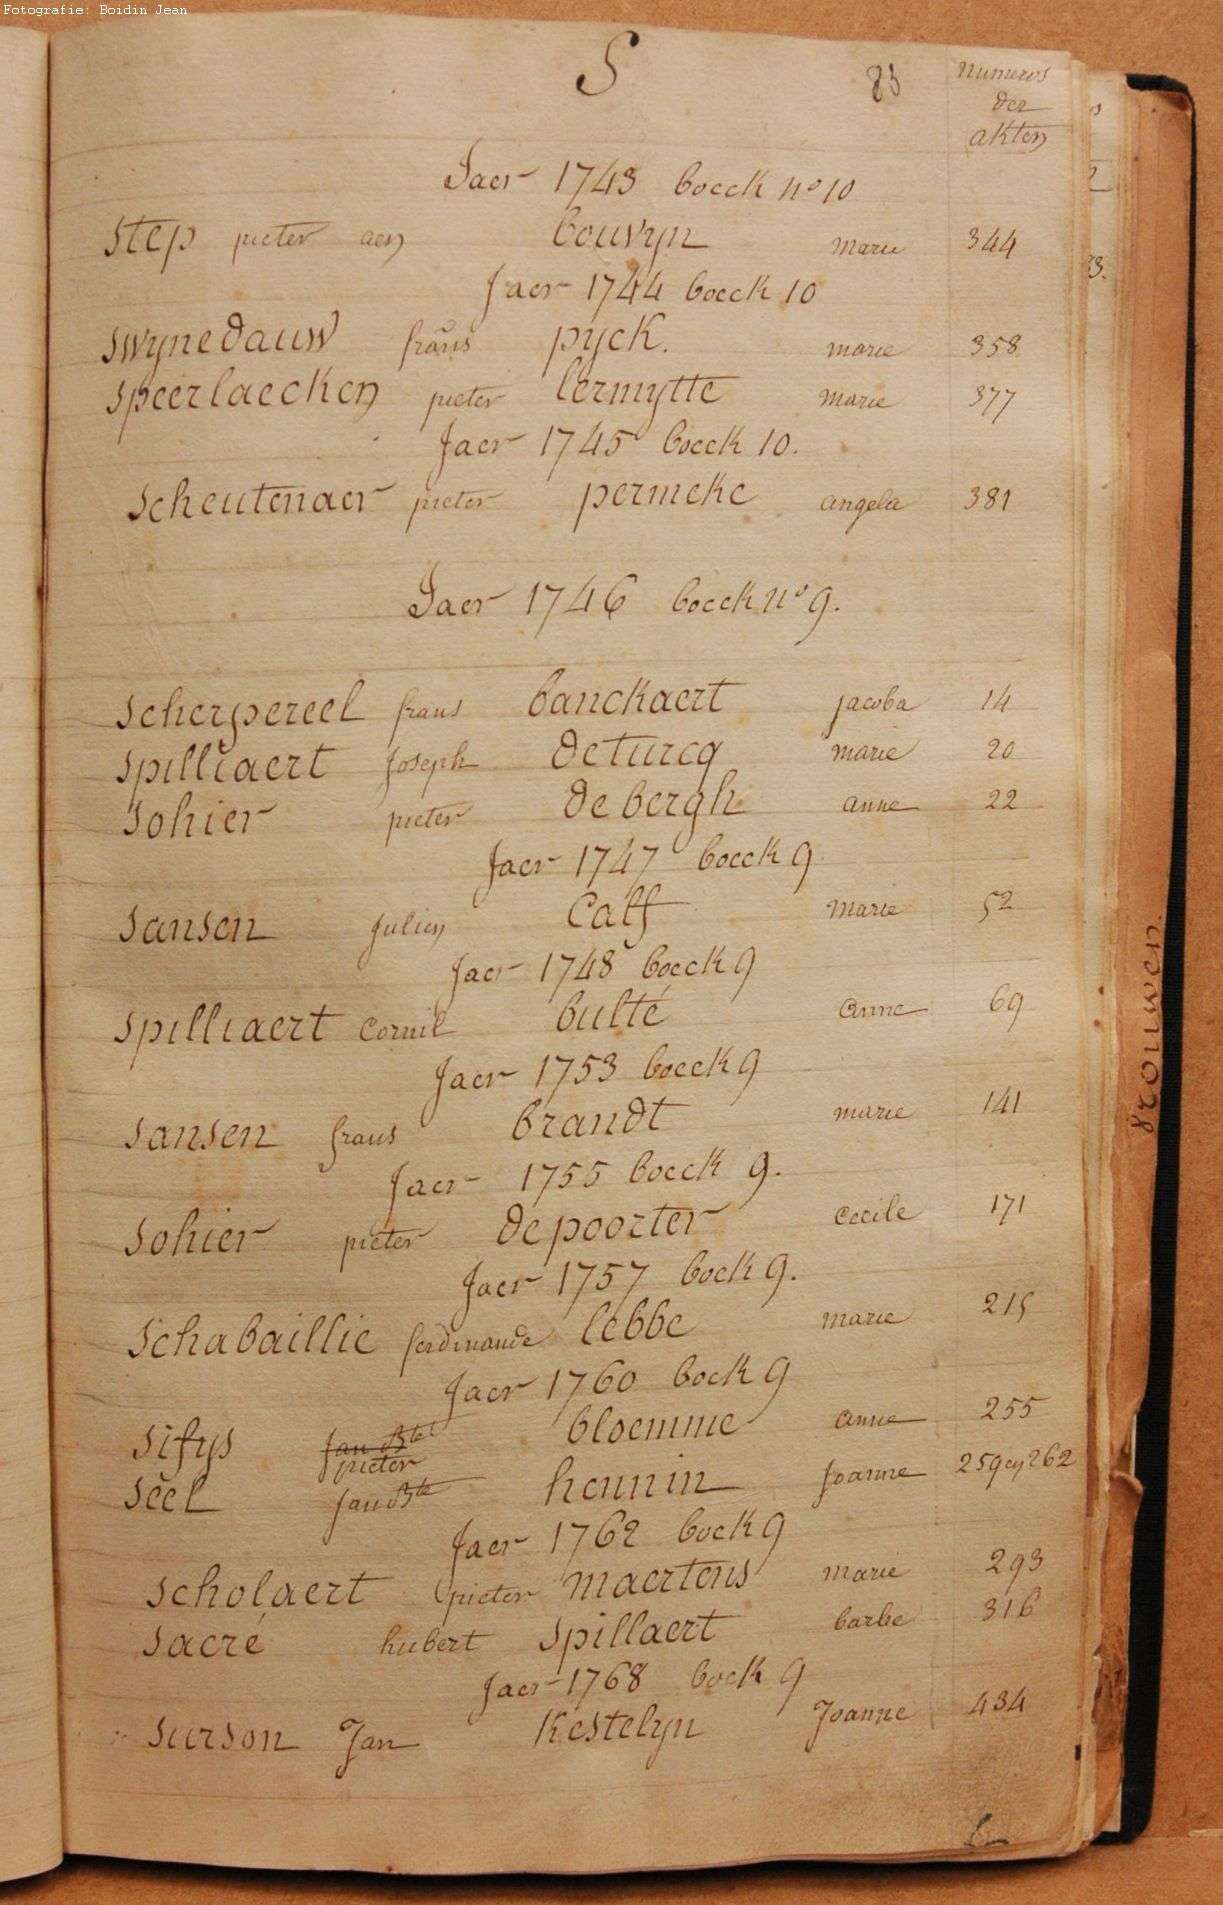 Fotografie: Boidin Jean
S 83 Numeros
der
akten
Jaer 1743 boeck nº 10
Step pieter aen bouvyn marie 344
Jaer 1744 boeck 10
Swynedauw frans pyck. marie 358
Speerlaecken pieter lermytte marie 377
Jaer 1745 boeck 10.
Scheutenaer pieter permeke angela 381
Jaer 1746 boeck nº 9.
Scherpereel frans banckaert jacoba 14
Spilliaert Joseph deturcq marie 20
Sohier pieter de bergh anne 22
Jaer 1747 boeck 9
Sansen Julien Calf marie 52
Jaer 1748 boeck 9
Spilliaert Cornil bulté anne 69
Jaer 1753 boeck 9
Sansen frans brandt marie 141
Jaer 1755 boeck 9.
Sohier pieter depoorter Cecile 171
Jaer 1757 boek 9.
Schabaillie ferdinande lebbe marie 215
Jaer 1760 boek 9
Sifys Jan Bte bloemme anne 255
pieter
Seel Jan Bte hennin Joanne 259 en 262
Jaer 1762 boek 9
Scholaert pieter maertens marie 293
Sacré hubert Spillaert barbe 316
Jaer 1768 boek 9
Surson Jan Kestelyn Joanne 434
vrouwen